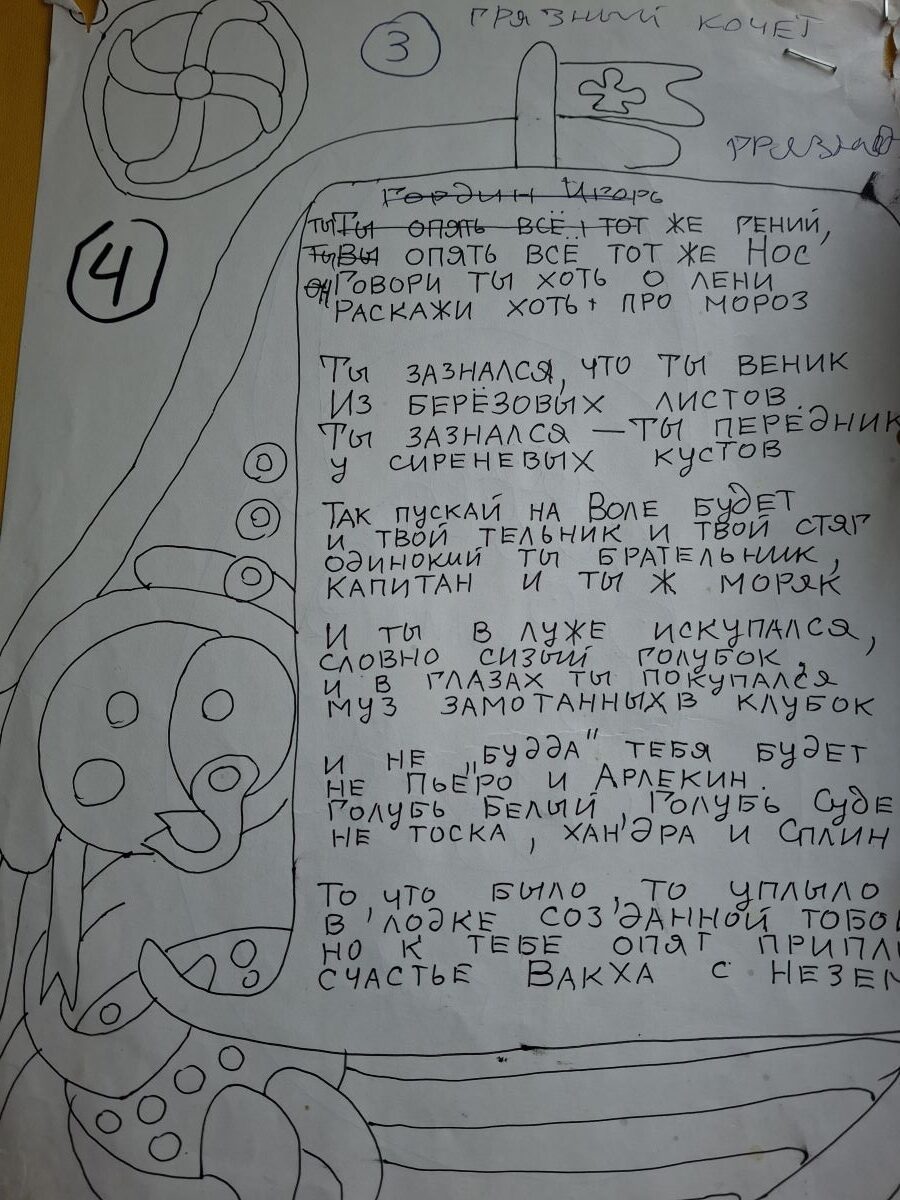 3
ГРЯЗНЫЙ КОЧЕТ
4
Гордин Игорь
ты Ты опять всё тот же гений,
ты Вы опять всё тот же Нос
Говори ты хоть о лени
Раскажи хоть про мороз
Ты зазнался, что ты веник
Из берёзовых листов.
Ты зазнался — ты передник
у сиреневых кустов
Так пускай на Воле будет
и твой тельник и твой стяг
одинокий ты брательник,
капитан и ты ж моряк
И ты в луже искупался,
словно сизый голубок,
и в глазах ты покупался
муз замотанных в клубок
И не „Будда" тебя будет
не Пьеро и Арлекин.
Голубь Белый, Голубь Суде
не тоска, хандра и Сплин
То, что было, то уплыло
В лодке созданной тобо
но к тебе опят припл
счастье Вакха с незем